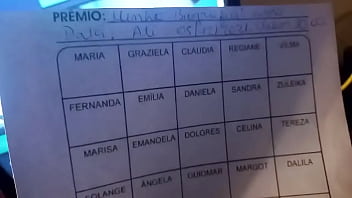 PRÊMIO: Minha
Data, 05/12/2021
MARIA GRAZIELA CLAUDIA REGIANE VILMA
FERNANDA EMÍLIA DANIELA SANDRA ZULEIKA
MARISA EMANOELA DOLORES CELINA TEREZA
SOLANGE ÂNGELA GUIOMAR MARGOT DALILA